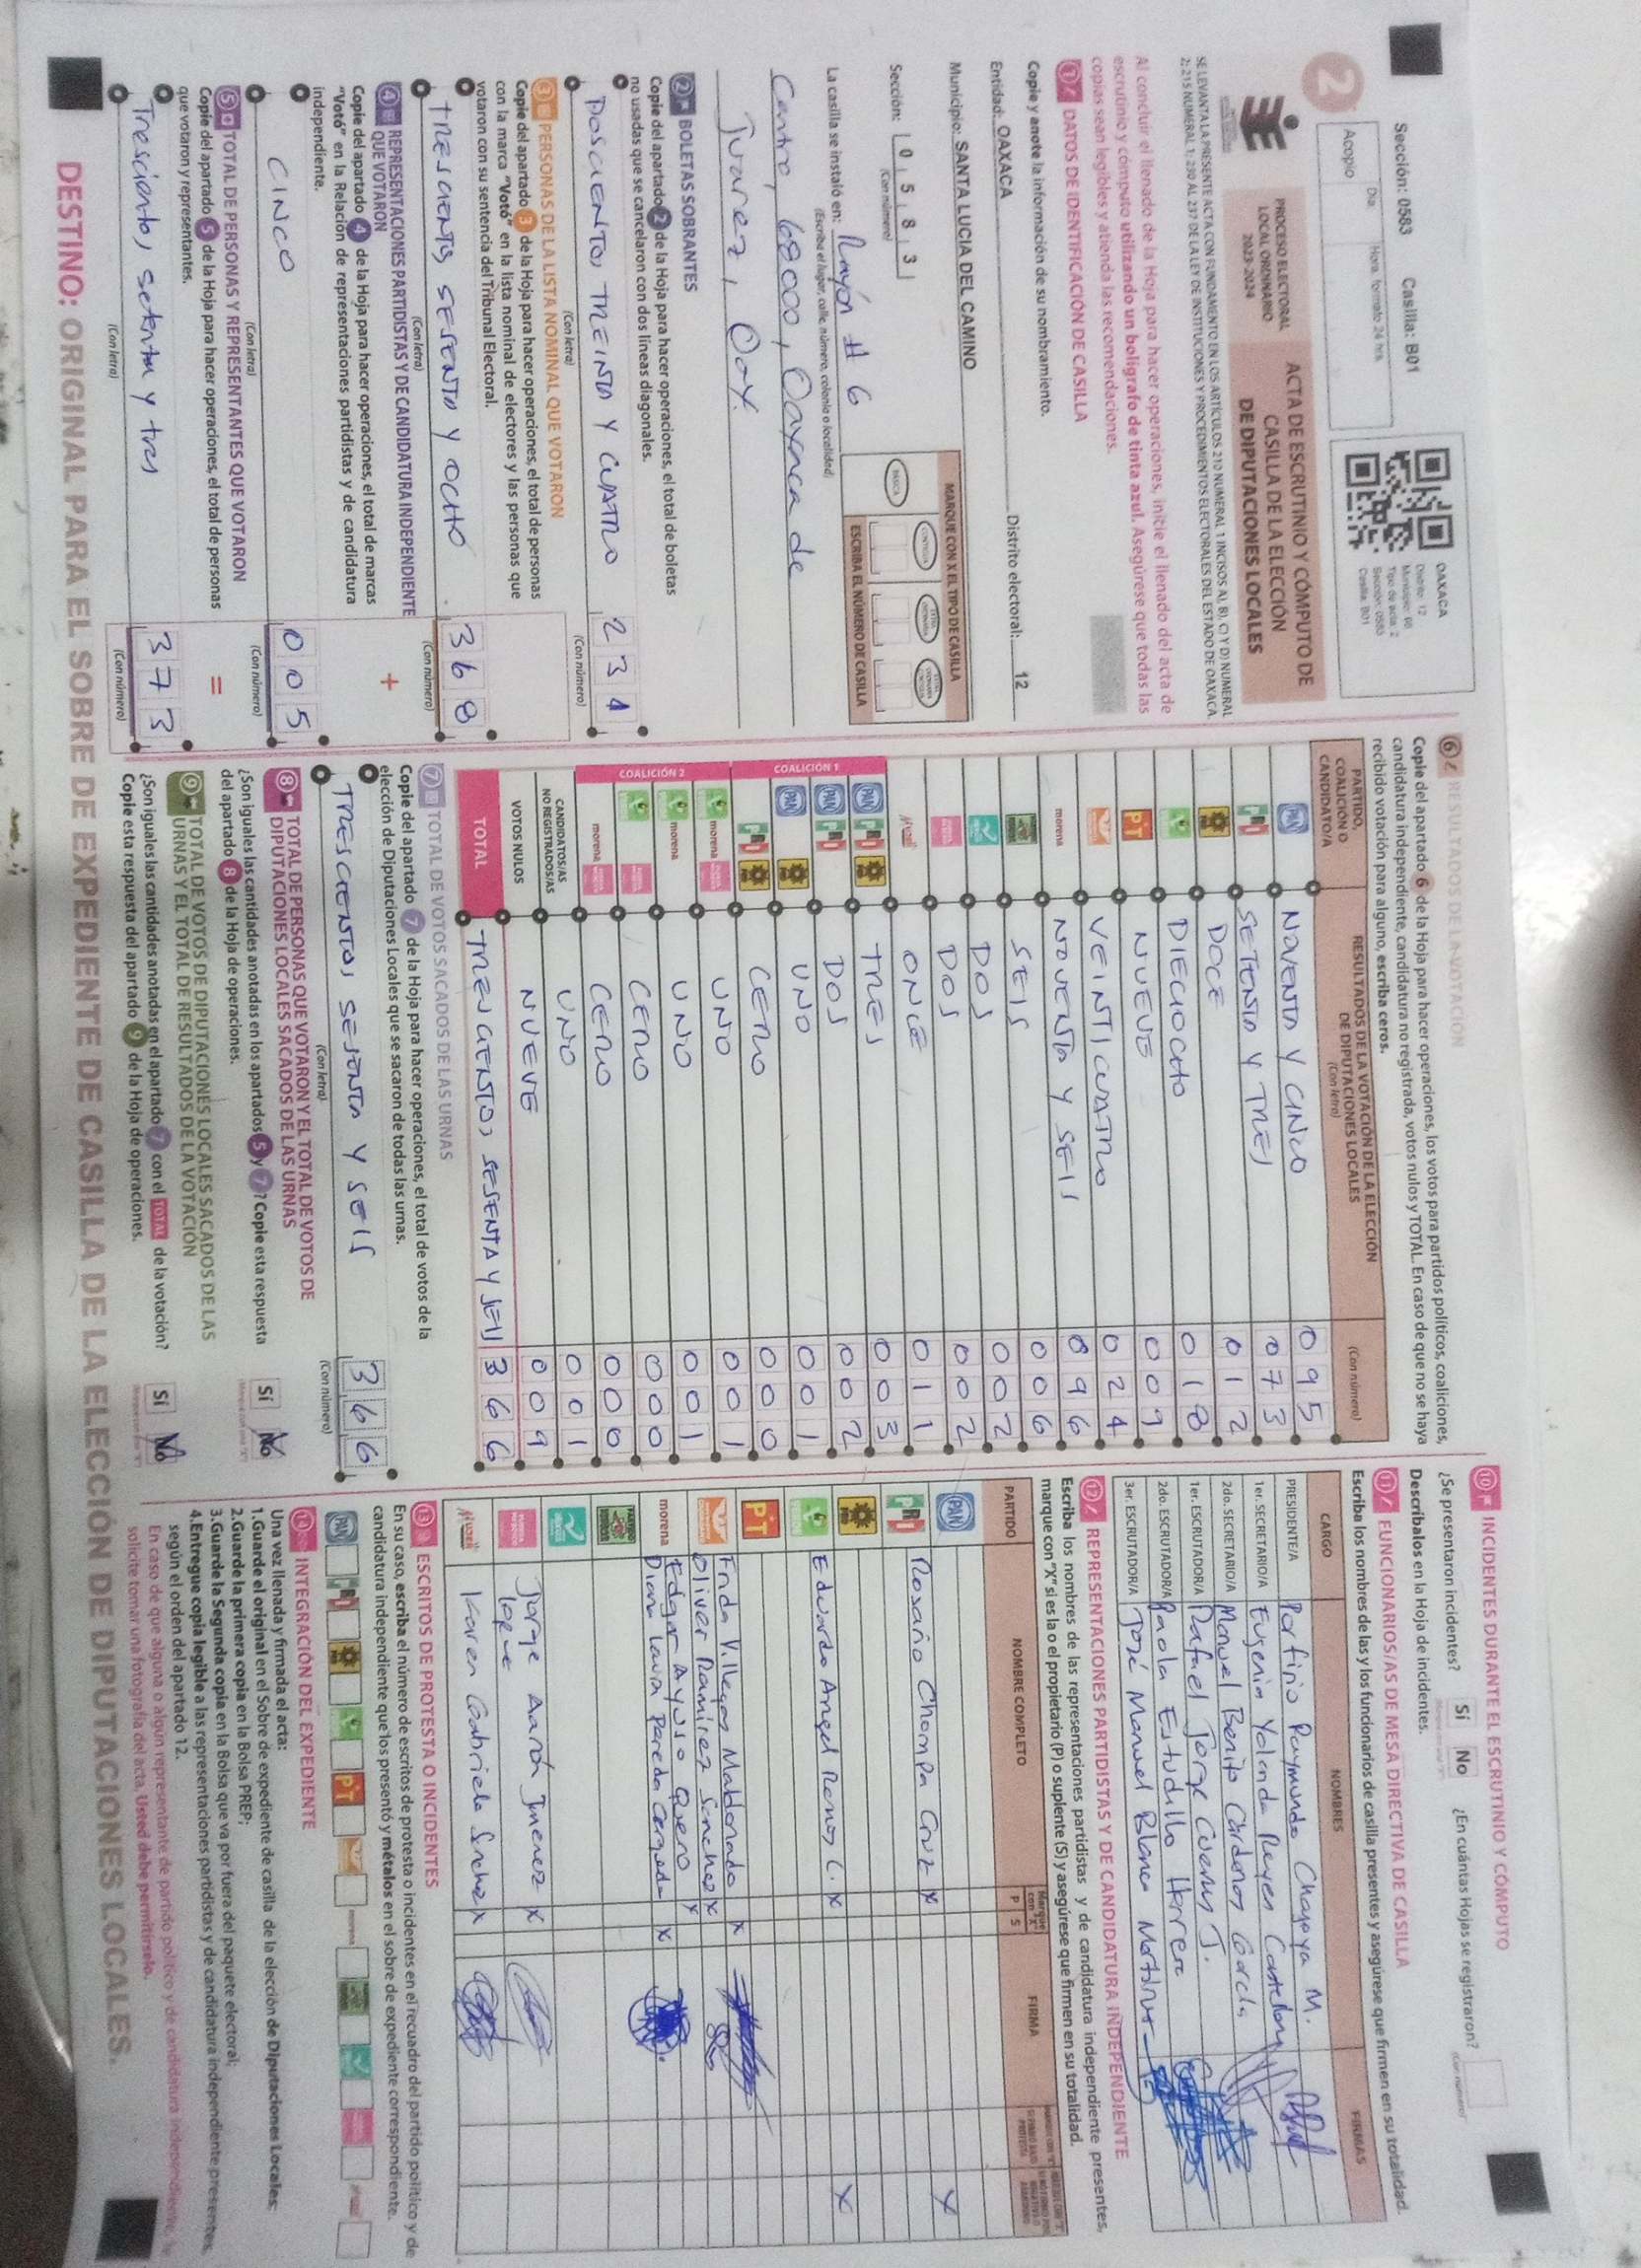 Sección: 0583 Casilla: B01
2
Acopio
Día Hora, formato 24 hrs.
OAXACA
Distrito: 12
Tipo de acta: 2
Casilla: B01
PROCESO ELECTORAL
LOCAL ORDINARIO
2023-2024
ACTA DE ESCRUTINIO Y CÓMPUTO DE
CASILLA DE LA ELECCIÓN
DE DIPUTACIONES LOCALES
SE LEVANTA LA PRESENTE ACTA CON FUNDAMENTO EN LOS ARTÍCULOS 210 NUMERAL 1 INCISOS A), B), C) Y D) NUMERAL
2; 215 NUMERAL 1; 230 AL 237 DE LA LEY DE INSTITUCIONES Y PROCEDIMIENTOS ELECTORALES DEL ESTADO DE OAXACA.
Al concluir el llenado de la Hoja para hacer operaciones, inicie el llenado del acta de
escrutinio y cómputo utilizando un bolígrafo de tinta azul. Asegúrese que todas las
copias sean legibles y atienda las recomendaciones.
1 DATOS DE IDENTIFICACIÓN DE CASILLA
Copie y anote la información de su nombramiento.
Entidad: OAXACA Distrito electoral: 12
Municipio: SANTA LUCIA DEL CAMINO
Sección: 0 5 8 3
(Con número)
MARQUE CON X EL TIPO DE CASILLA
BÁSICA
ESCRIBA EL NÚMERO DE CASILLA
La casilla se instaló en: Rayón # 6
(Escriba el lugar, calle, número, colonia o localidad)
Centro, 68000, Oaxaca de
Juarez, Oax.
2 BOLETAS SOBRANTES
Copie del apartado 2 de la Hoja para hacer operaciones, el total de boletas
no usadas que se cancelaron con dos líneas diagonales.
DOSCIENTOS TREINTA Y CUATRO 2 3 4
(Con letra) (Con número)
3 PERSONAS DE LA LISTA NOMINAL QUE VOTARON
Copie del apartado 3 de la Hoja para hacer operaciones, el total de personas
con la marca "Votó" en la lista nominal de electores y las personas que
votaron con su sentencia del Tribunal Electoral.
TRESCIENTOS SESENTA Y OCHO 3 6 8
(Con letra) (Con número)
4 REPRESENTACIONES PARTIDISTAS Y DE CANDIDATURA INDEPENDIENTE
QUE VOTARON
Copie del apartado 4 de la Hoja para hacer operaciones, el total de marcas
"Votó" en la Relación de representaciones partidistas y de candidatura
independiente.
+
CINCO 0 0 5
(Con letra) (Con número)
5 TOTAL DE PERSONAS Y REPRESENTANTES QUE VOTARON
Copie del apartado 5 de la Hoja para hacer operaciones, el total de personas
que votaron y representantes.
=
Trescientos setenta y tres 3 7 3
(Con letra) (Con número)
6 RESULTADOS DE LA VOTACIÓN
Copie del apartado 6 de la Hoja para hacer operaciones, los votos para partidos políticos, coaliciones,
candidatura independiente, candidatura no registrada, votos nulos y TOTAL. En caso de que no se haya
recibido votación para alguno, escriba ceros.
PARTIDO,
COALICIÓN O
CANDIDATO/A
RESULTADOS DE LA VOTACIÓN DE LA ELECCIÓN
DE DIPUTACIONES LOCALES
(Con letra) (Con número)
PAN NOVENTA Y CINCO 0 9 5
PRI SETENTA Y TRES 0 7 3
PRD DOCE 0 1 2
DIECIOCHO 0 1 8
PT NUEVE 0 0 9
VEINTICUATRO 0 2 4
morena NOVENTA Y SEIS 0 9 6
SEIS 0 0 6
DOS 0 0 2
DOS 0 0 2
ONCE 0 1 1
COALICIÓN 1
PAN PRI PRD TRES 0 0 3
PAN PRI DOS 0 0 2
PAN PRD UNO 0 0 1
PRI PRD CERO 0 0 0
COALICIÓN 2
morena UNO 0 0 1
morena UNO 0 0 1
CERO 0 0 0
morena CERO 0 0 0
CANDIDATOS/AS
NO REGISTRADOS/AS UNO 0 0 1
VOTOS NULOS NUEVE 0 0 9
TOTAL TRESCIENTOS SESENTA Y SEIS 3 6 6
7 TOTAL DE VOTOS SACADOS DE LAS URNAS
Copie del apartado 7 de la Hoja para hacer operaciones, el total de votos de la
elección de Diputaciones Locales que se sacaron de todas las urnas.
TRESCIENTOS SESENTA Y SEIS 3 6 6
(Con letra) (Con número)
8 TOTAL DE PERSONAS QUE VOTARON Y EL TOTAL DE VOTOS DE
DIPUTACIONES LOCALES SACADOS DE LAS URNAS
¿Son iguales las cantidades anotadas en los apartados 5 y 7? Copie esta respuesta
del apartado 8 de la Hoja de operaciones.
Sí No
9 TOTAL DE VOTOS DE DIPUTACIONES LOCALES SACADOS DE LAS
URNAS Y EL TOTAL DE RESULTADOS DE LA VOTACIÓN
¿Son iguales las cantidades anotadas en el apartado 7 con el TOTAL de la votación?
Copie esta respuesta del apartado 9 de la Hoja de operaciones.
Sí No
10 INCIDENTES DURANTE EL ESCRUTINIO Y CÓMPUTO
¿Se presentaron incidentes? Sí No ¿En cuántas Hojas se registraron?
(Con número)
Descríbalos en la Hoja de incidentes.
11 FUNCIONARIOS/AS DE MESA DIRECTIVA DE CASILLA
Escriba los nombres de las y los funcionarios de casilla presentes y asegúrese que firmen en su totalidad.
CARGO NOMBRES FIRMAS
PRESIDENTE/A Porfirio Raymundo Chagoya M.
1er. SECRETARIO/A Eugenia Yolanda Reyes
2do. SECRETARIO/A Manuel Benito Cárdenas García
1er. ESCRUTADOR/A Rafael Jorge J.
2do. ESCRUTADOR/A Paola Estudillo Herrera
3er. ESCRUTADOR/A José Manuel Blanco
12 REPRESENTACIONES PARTIDISTAS Y DE CANDIDATURA INDEPENDIENTE
Escriba los nombres de las representaciones partidistas y de candidatura independiente presentes,
marque con "X" si es la o el propietario (P) o suplente (S) y asegúrese que firmen en su totalidad.
PARTIDO NOMBRE COMPLETO Marque con "X" P S FIRMA
PAN X
PRI Rosario Chompa Cruz X
PRD X
Eduardo Angel Ramos C. X
PT
Frida Villegas Maldonado X
Oliver Ramirez Sanchez X
morena Edgar Ayuso Quero X
Diana Laura Pereda Cepeda X
Jorge Aarón Jimenez X
Karen Gabriela X
13 ESCRITOS DE PROTESTA O INCIDENTES
En su caso, escriba el número de escritos de protesta o incidentes en el recuadro del partido político y de
candidatura independiente que los presentó y métalos en el sobre de expediente correspondiente.
PAN PRI PRD PT morena
14 INTEGRACIÓN DEL EXPEDIENTE
Una vez llenada y firmada el acta:
1.Guarde el original en el Sobre de expediente de casilla de la elección de Diputaciones Locales;
2.Guarde la primera copia en la Bolsa PREP;
3.Guarde la Segunda copia en la Bolsa que va por fuera del paquete electoral;
4.Entregue copia legible a las representaciones partidistas y de candidatura independiente presentes,
según el orden del apartado 12.
En caso de que alguna o algún representante de partido político y de candidatura independiente, le
solicite tomar una fotografía del acta, Usted debe permitírselo.
DESTINO: ORIGINAL PARA EL SOBRE DE EXPEDIENTE DE CASILLA DE LA ELECCIÓN DE DIPUTACIONES LOCALES.